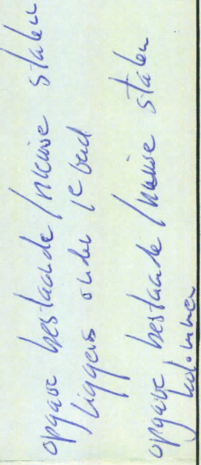 opgave bestaande/nieuwe stalen
liggers onder 1e verd
opgave bestaande/nieuwe stalen
kolommen